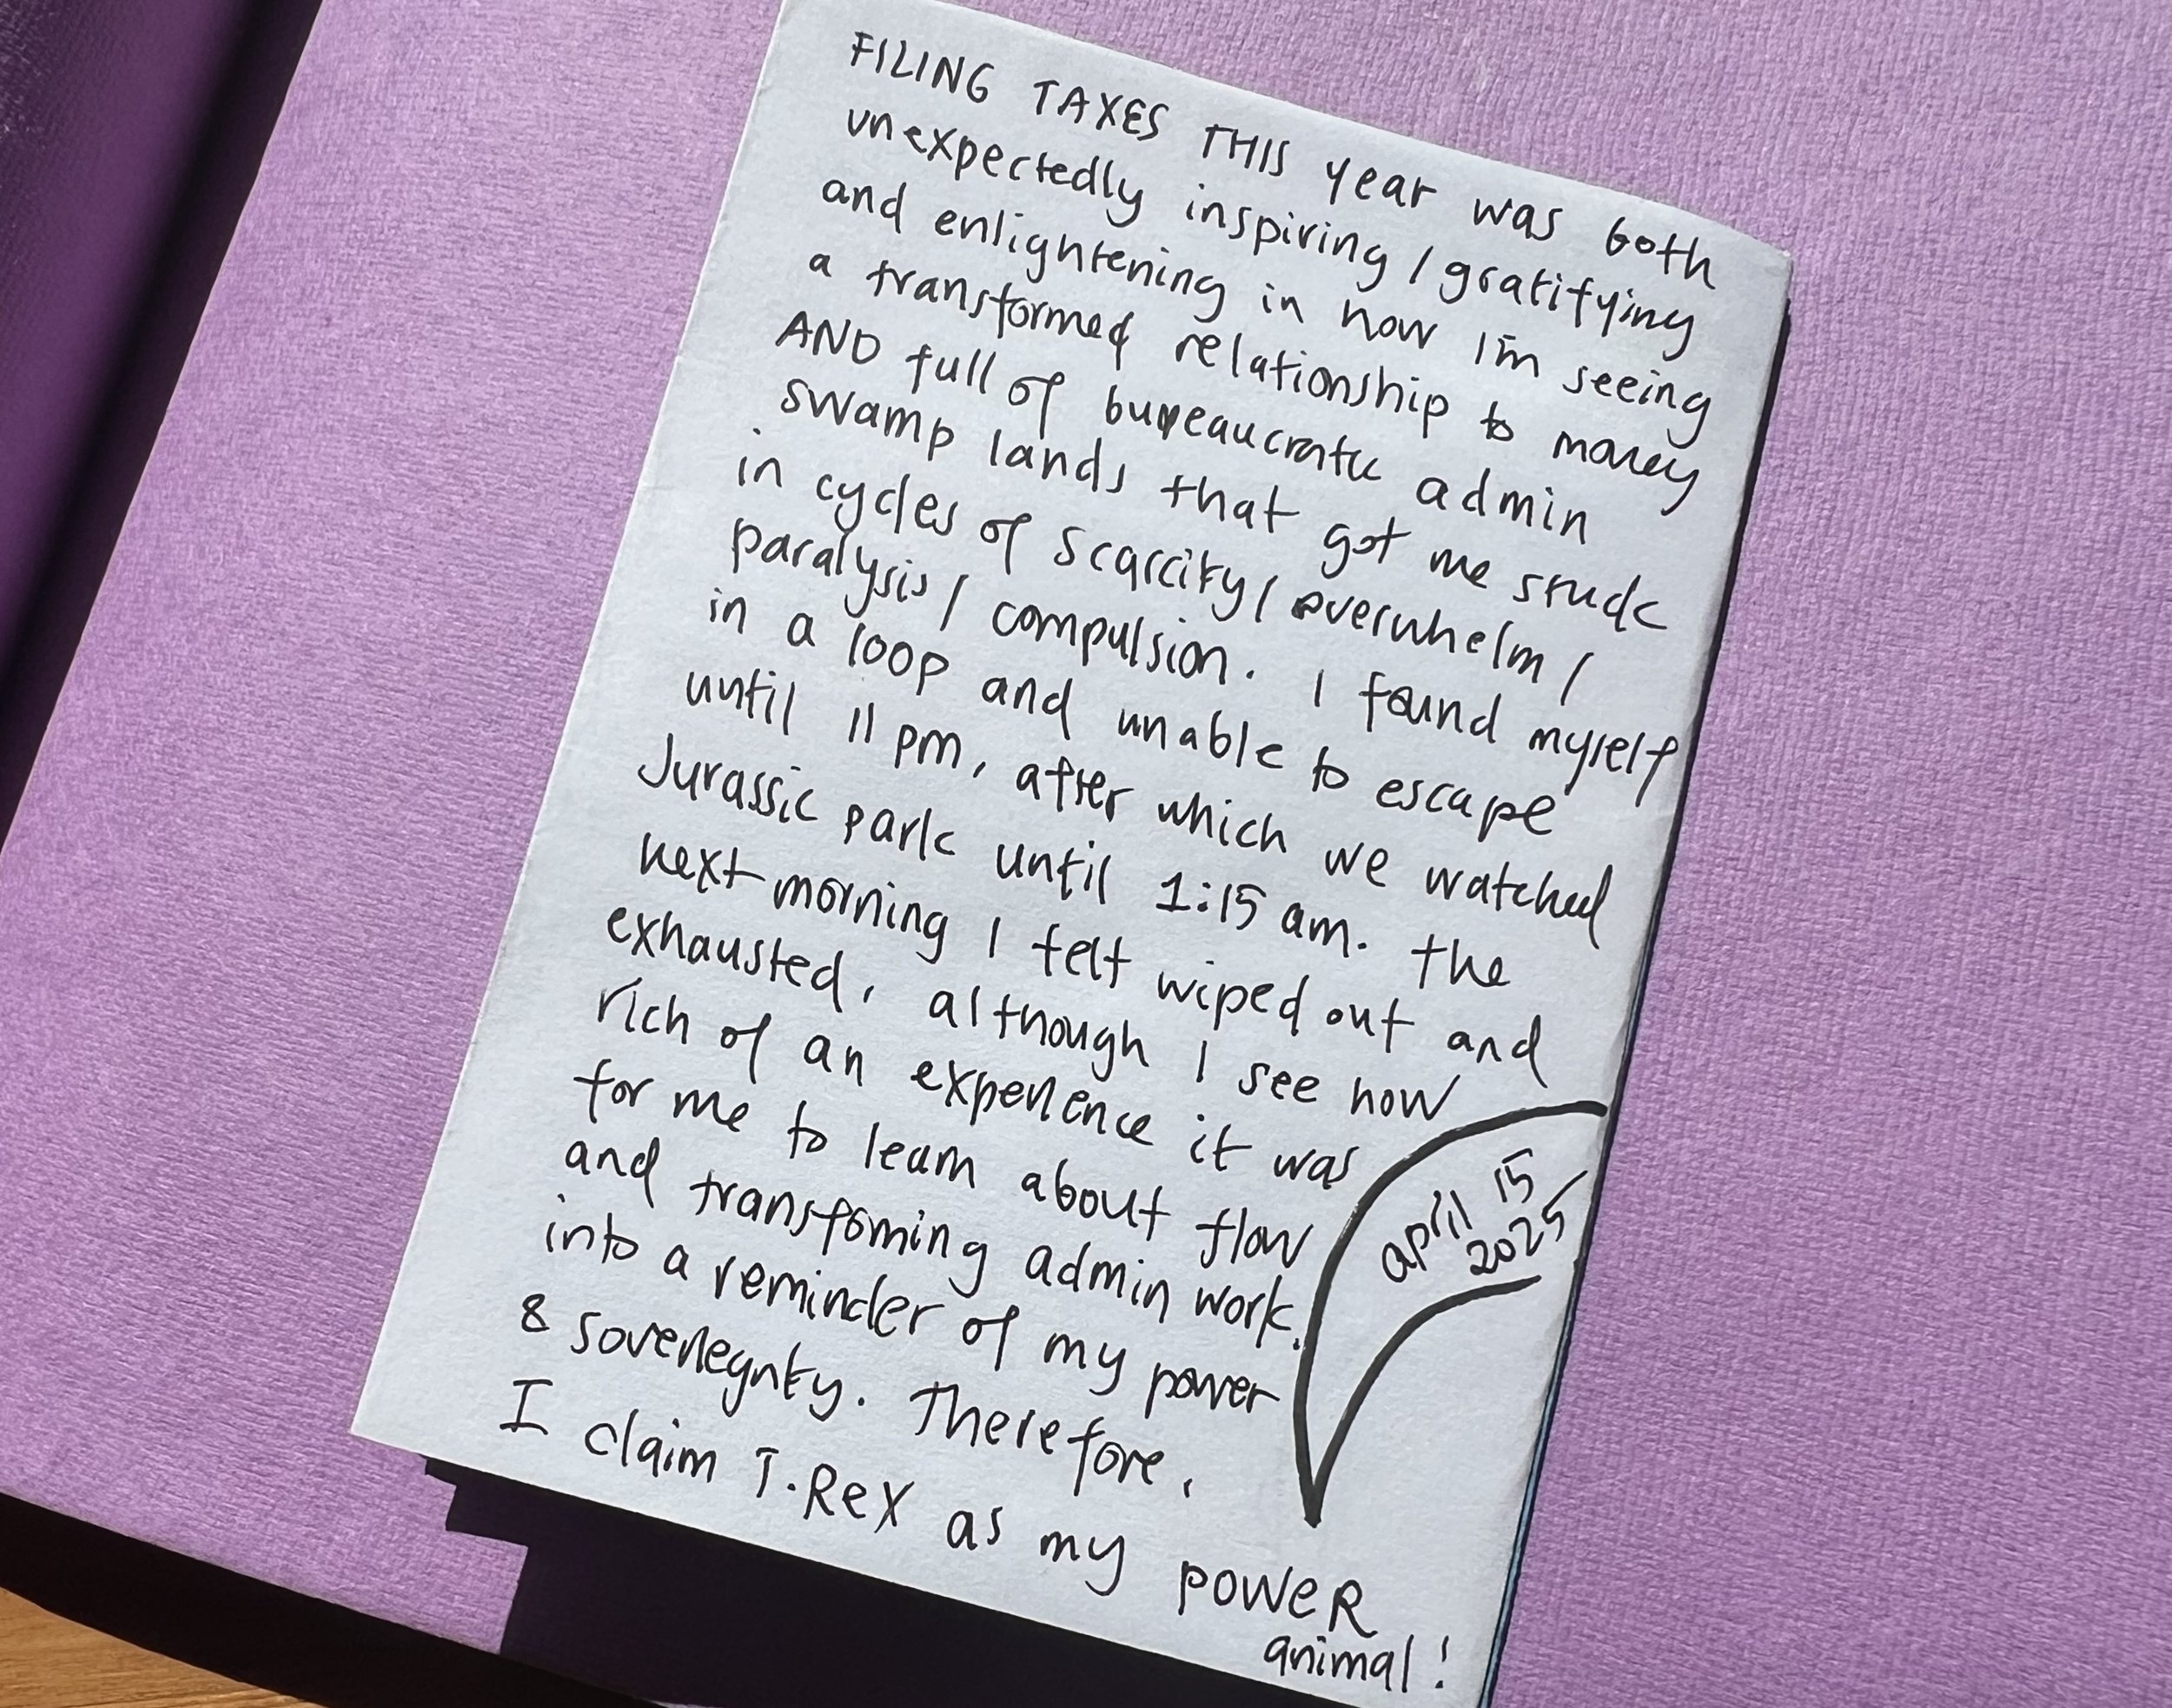 FILING TAXES THIS year was both
unexpectedly inspiring / gratifying
and enlightening in how I'm seeing
a transformed relationship to money
AND full of bureaucratic admin
swamp lands that got me stuck
in cycles of scarcity / overwhelm /
paralysis / compulsion. I found myself
in a loop and unable to escape
until 11 pm, after which we watched
Jurassic park until 1:15 am. the
next morning I felt wiped out and
exhausted, although I see how
rich of an experience it was
for me to learn about flow
and transfoming admin work
into a reminder of my power
& sovereignty. Therefore,
I claim T.ReX as my POWeR
animal!
april 15
2025